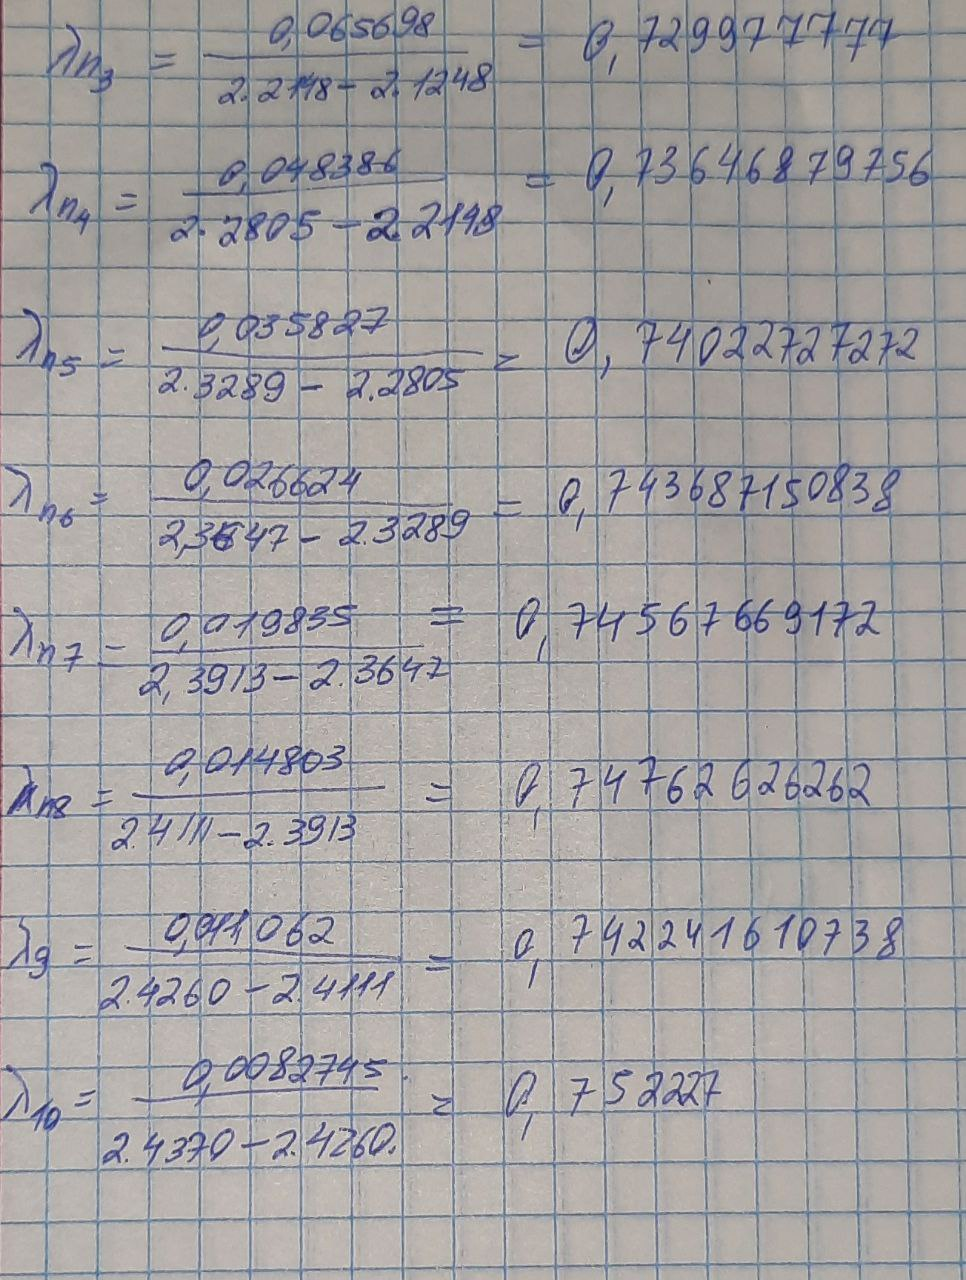 λn3 = 0,065698 / 2.2148 - 2.1248 = 0,729977777
λn4 = 0,048386 / 2.2805 - 2.2148 = 0,73646879756
λn5 = 0,035827 / 2.3289 - 2.2805 = 0,74022727272
λn6 = 0,026624 / 2,3647 - 2.3289 = 0,743687150838
λn7 - 0,019835 / 2,3913 - 2.3647 = 0,74567669172
λn8 = 0,014803 / 2.4111 - 2.3913 = 0,74762626262
λ9 = 0,011062 / 2.4260 - 2.4111 = 0,742241610738
λ10 = 0,0082745 / 2.4370 - 2.4260. = 0,752227